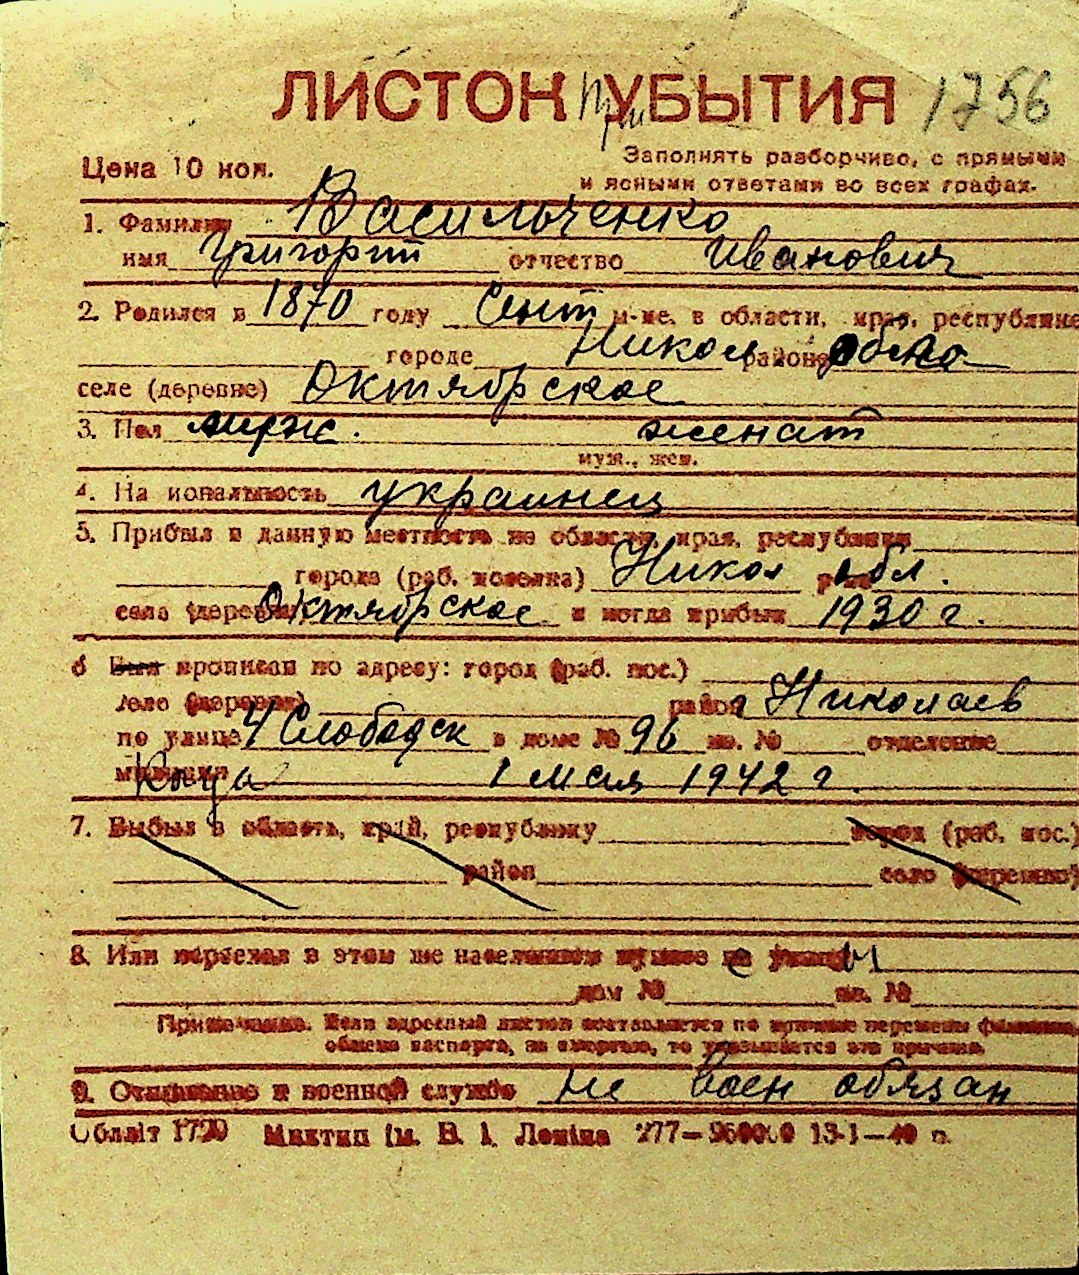 ЛИСТОК При УБЫТИЯ 1756
Цена 10 коп. Заполнять разборчиво, с прямыми
и ясными ответами во всех графах.
1. Фамилия Васильченко
имя Григорий отчество Иванович
2. Родился в 1870 году Сент м-це, в области, края, республике
городе Никол районе обл
селе (деревне) Октябрьское
3. Пол муж. женат
муж., жен.
4. На иональность украинец
5. Прибыл в данную местность из области, края, республики
города (раб. поселка) Никол обл.
села (деревни) Октябрское и когда прибыл 1930 г.
6 Был прописан по адресу: город (раб. пос.)
село (деревня) район Николаев
по улице 4 Слободск в доме № 96 кв. № отделение
милиции Куда 1 мая 1942 г.
7. Выбыл в область, край, республику город (раб. пос.)
район село (деревню)
8. Или переехал в этом же населенном пункте на улицу
дом № кв. №
Примечание. Если адресный листок составляется по причине перемены фамилии,
обмена паспорта, за смертью, то указывается эта причина.
9. Отношение к военной службе не воен обязан
Обліт 1790 Миктип ім. В. І. Леніна 277—960000 13-1—40 р.